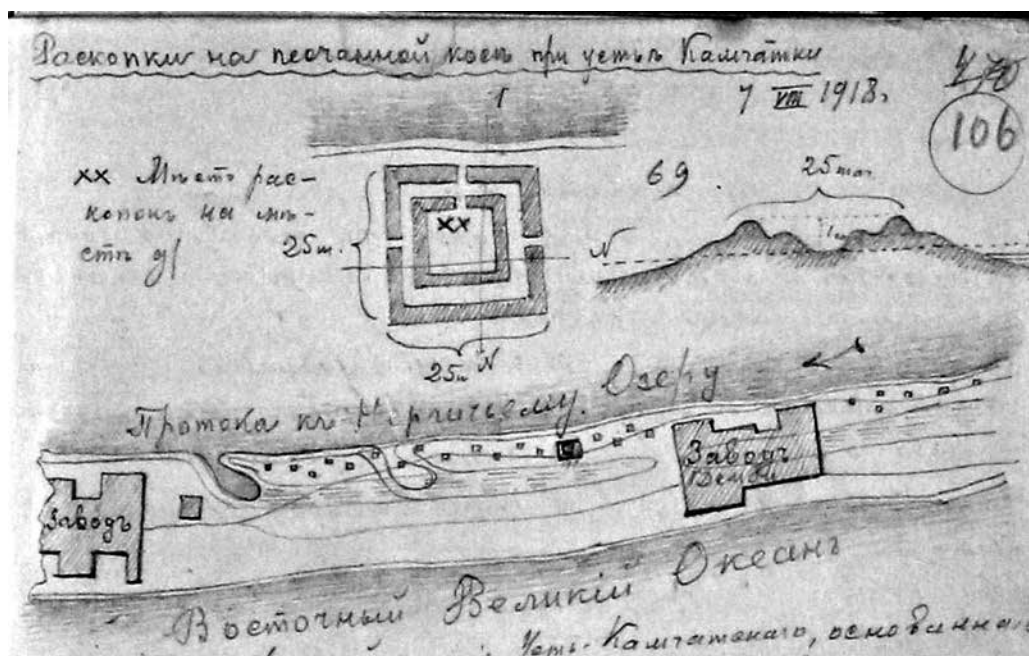 Раскопки на песчанной косѣ при устьѣ Камчатки
7 VIII 1918.
106
ХХ Мѣсто рас-
копокъ на мѣ-
стѣ
25ш.
ХХ
25ш
N
69.
25шаг.
N
Протока къ Нерпичьему Озеру
Заводъ
Заводъ
Восточный Великій Океанъ
Усть-Камчатскаго, основанна